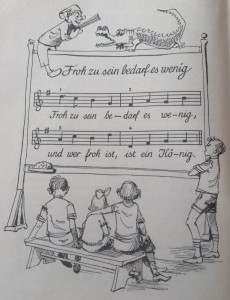 Froh zu sein bedarf es wenig
1 2
Froh zu sein be-darf es we-nig,
3 4
und wer froh ist, ist ein Kö-nig.